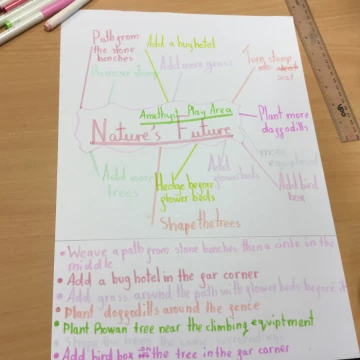 Path from
the stone
benches
Add a bug hotel
Add more grass
Turn stump
seat
Amethyst Play Area
Nature's Future
Plant more
daggodills
more
equipment
Add more
trees
Hedge before
glower beds
Add
glowerbeds
Add bird
box
Shape the trees
• Weave a path from stone benches then a circle in the
middle
• Add a bug hotel in the gar corner
• Add grass around the path with glower beds before it
• Plant daggodills around the gence
• Plant Rowan tree near the climbing equiptment
• Add bird box in the tree in the gar corner